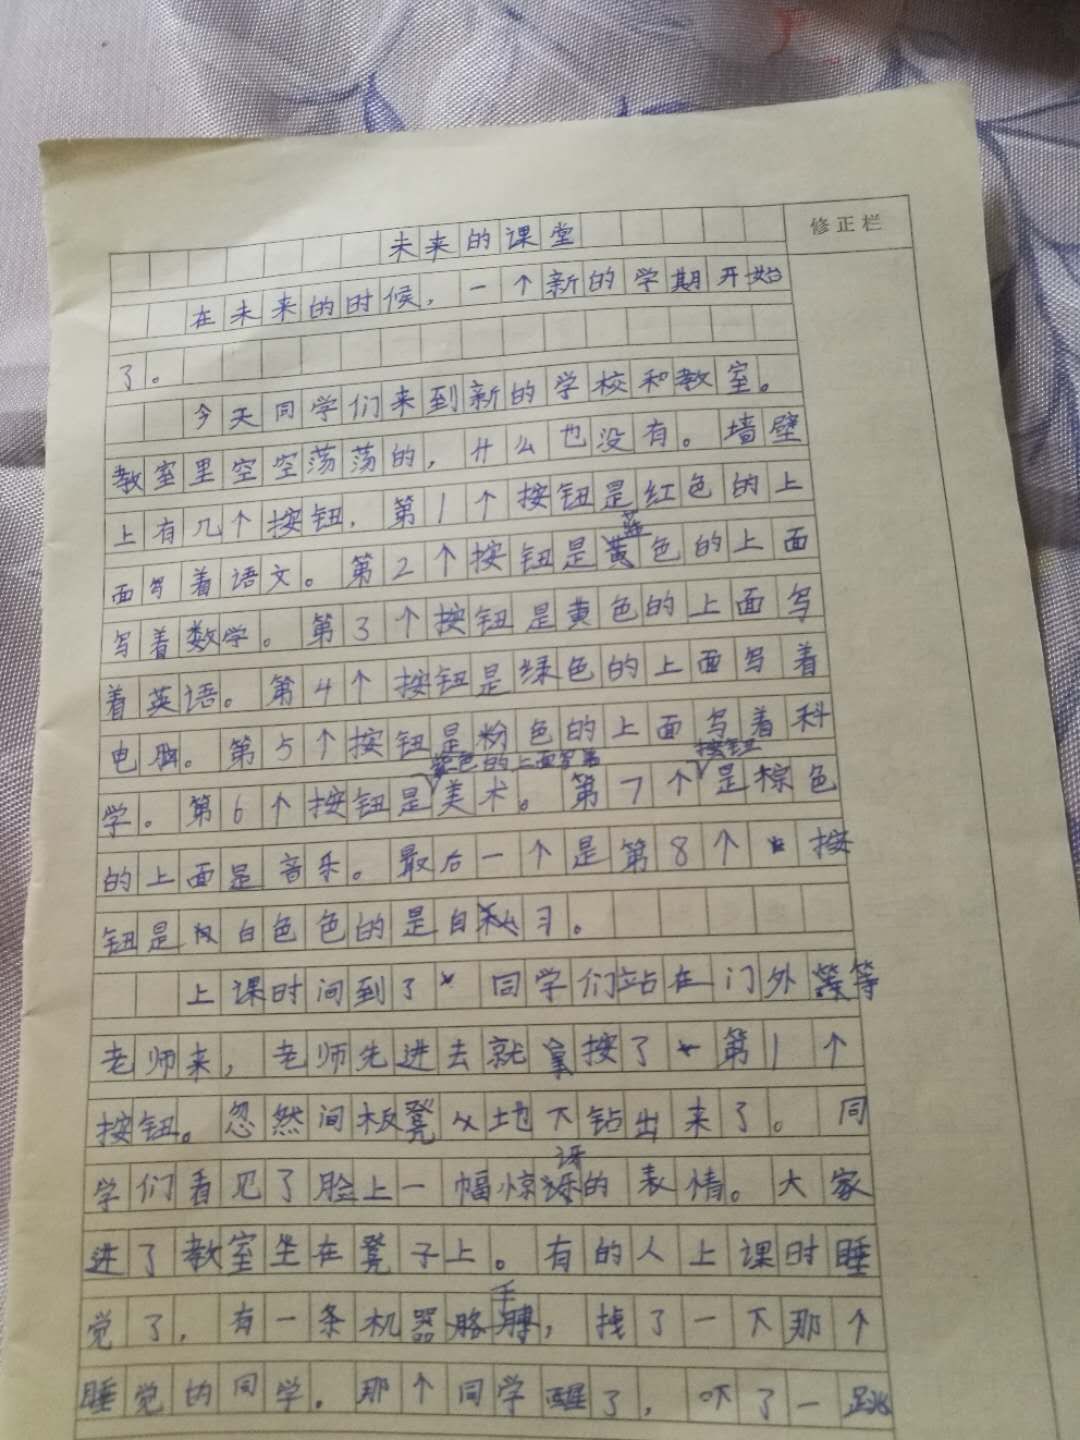 未来的课堂
修正栏
在未来的时候，一个新的学期开始
了。
今天同学们来到新的学校和教室。
教室里空空荡荡的，什么也没有。墙壁
上有几个按钮，第1个按钮是红色的上
面写着语文。第2个按钮是蓝色的上面
写着数学。第3个按钮是黄色的上面写
着英语。第4个按钮是绿色的上面写着
电脑。第5个按钮是粉色的上面写着科
学。第6个按钮是紫色的上面写着美术。第7个按钮是棕色
的上面是音乐。最后一个是第8个按
钮是白色色的是自习。
上课时间到了同学们站在门外等
老师来，老师先进去就按了第1个
按钮。忽然间板凳从地下钻出来了。同
学们看见了脸上一幅惊讶的表情。大家
进了教室坐在凳子上。有的人上课时睡
觉了，有一条机器手，拽了一下那个
睡觉的同学。那个同学醒了，吓了一跳